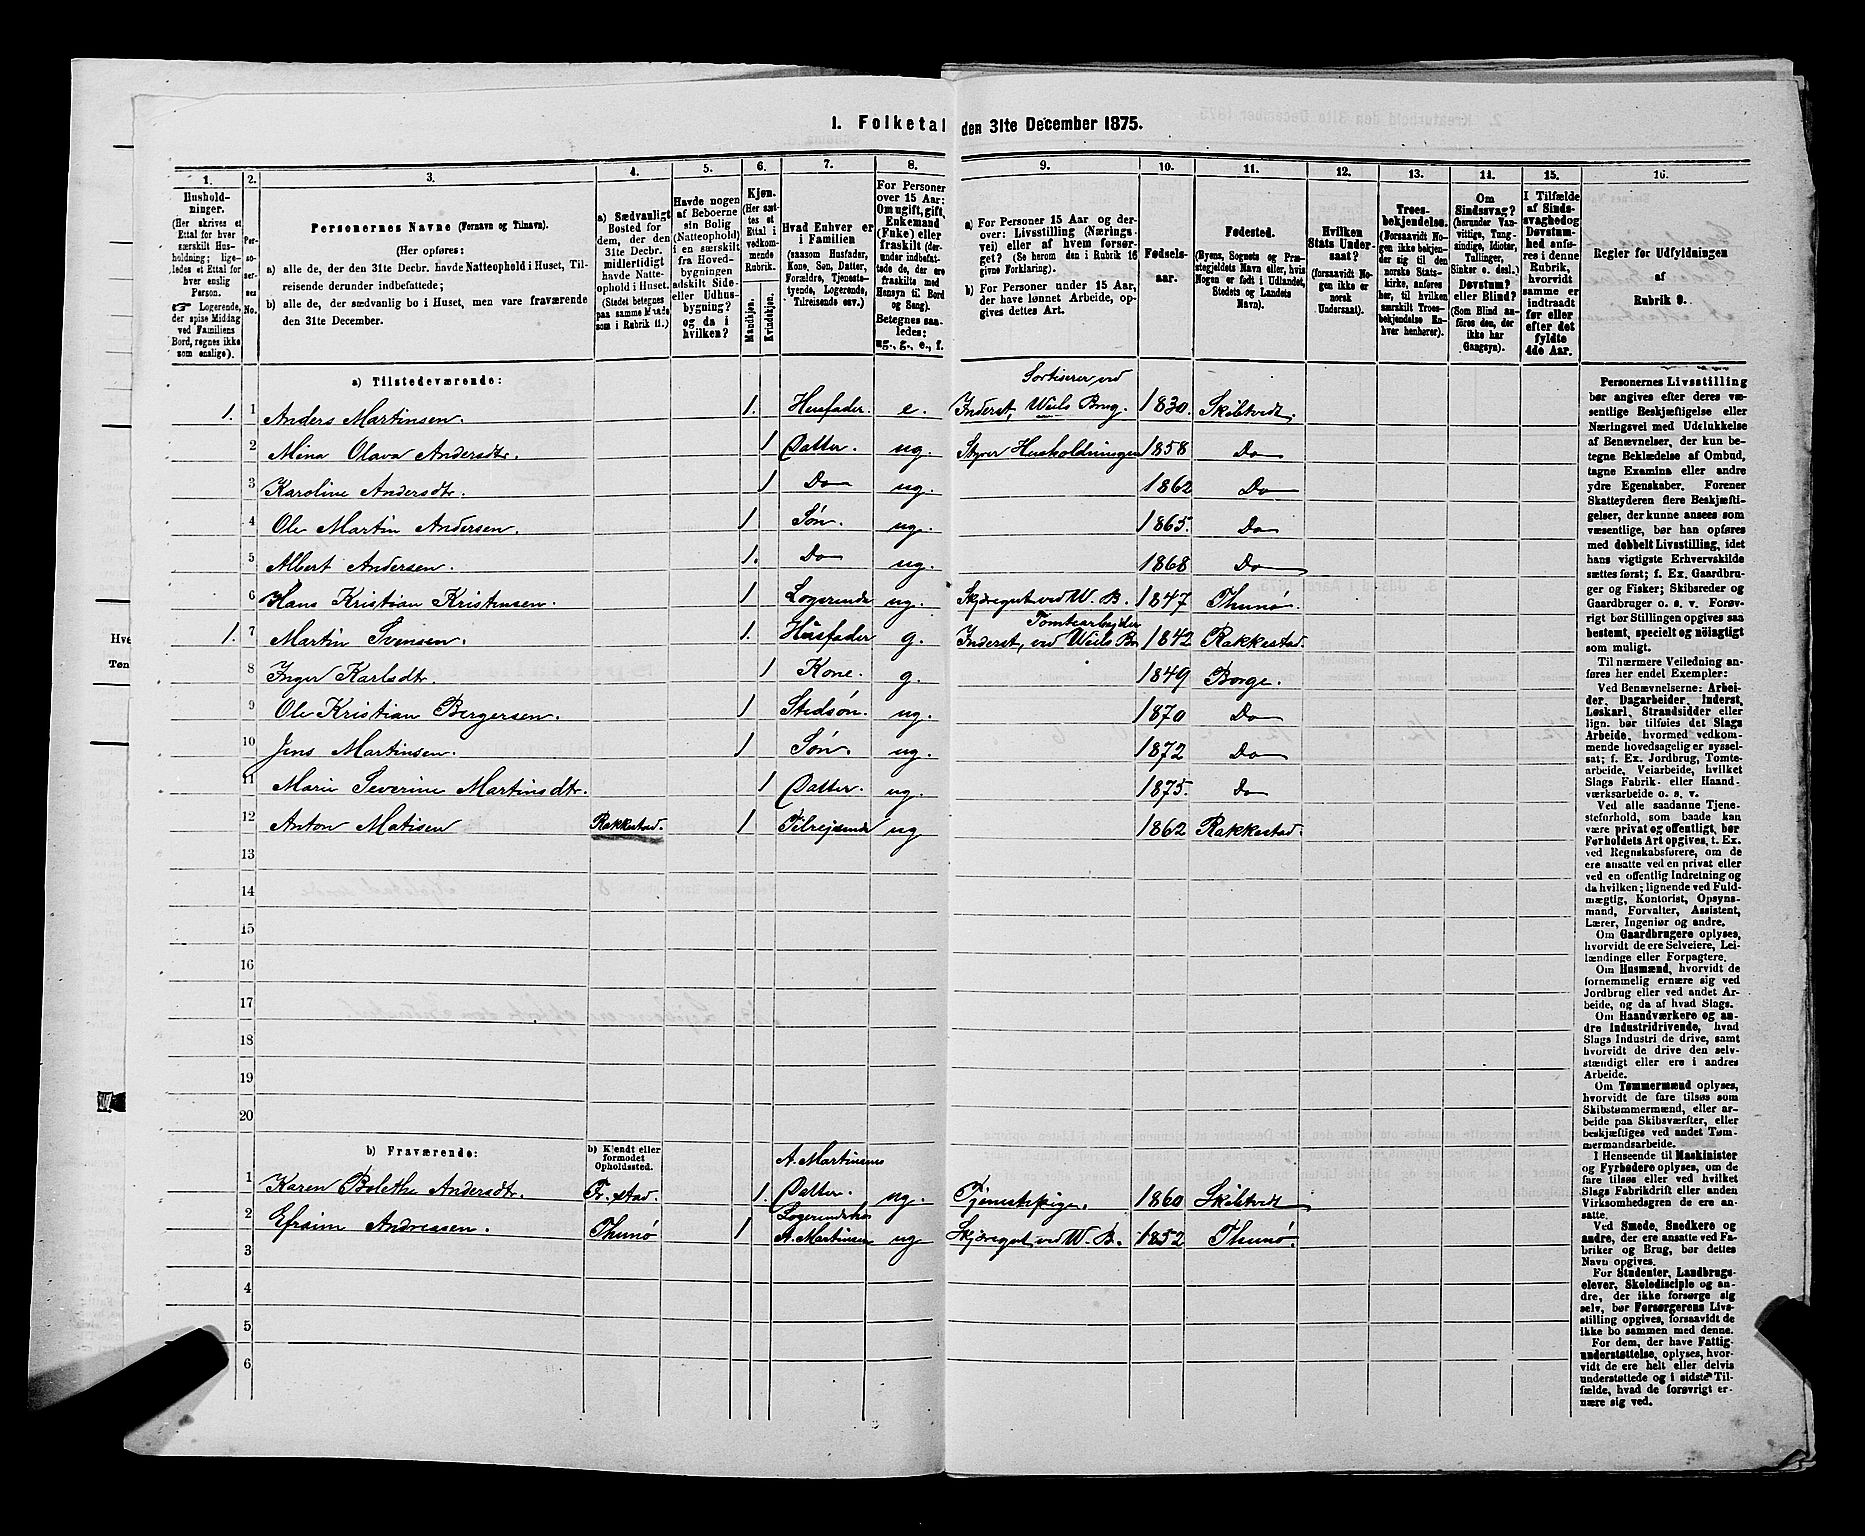 1. Folketal den 31te December 1875.
1. 2. 3. 4. 5. 6. 7. 8. 9. 10. 11. 12. 13. 14. 15. 16.
Husholdninger.
(Her skrives et
Ettal for hver
særskilt Husholdning;
ligeledes et Ettal for
hver enslig
Person.
☞ Logerende,
der spise Middag
ved Familiens
Bord, regnes ikke
som enslige).
Personernes No.
Personernes Navne (Fornavn og Tilnavn).
(Her opføres:
a) alle de, der den 31te Decbr. havde Natteophold i Huset, Tilreisende
derunder indbefattede;
b) alle de, der sædvanlig bo i Huset, men vare fraværende
den 31te December.
a) Sædvanligt
Bosted for
dem, der den
31te Decbr.
midlertidigt
havde Natteophold
i Huset.
(Stedet betegnes
paa samme Maade
som i Rubrik 11.)
Havde nogen
af Beboerne
sin Bolig
(Natteophold)
i en særskilt
fra Hovedbygningen
adskilt Side-
eller Udhusbygning?
og da i
hvilken?
Kjøn.
(Her sættes
et
Ettal i
vedkommende
Rubrik.
Mandkjøn.
Kvindekjøn.
Hvad Enhver er
i Familien
(saasom Husfader,
Kone, Søn, Datter,
Forældre, Tjenestetyende,
Logerende,
Tilreisende osv.)
For Personer
over 15 Aar:
Om ugift, gift,
Enkemand
(Enke) eller
fraskilt (derunder
indbefattede
de, der ere
fraskilte med
Hensyn til Bord
og Seng).
Betegnes saaledes:
ug., g., e., f.
a) For Personer 15 Aar og derover:
Livsstilling (Næringsvei)
eller af hvem forsørget?
(Se herom den i Rubrik 16
givne Forklaring).
b) For Personer under 15 Aar,
der have lønnet Arbeide, opgives
dettes Art.
Fødselsaar.
Fødested.
(Byens, Sognets og Præstegjeldets
Navn eller, hvis
Nogen er født i Udlandet,
Stedets og Landets
Navn).
Hvilken
Stats Undersaat?
(forsaavidt Nogen
ikke er
norsk
Undersaat).
Troesbekjendelse.
(Forsaavidt Nogen
ikke bekjender
sig til den
norske Statskirke,
anføres
her, til hvilken
særskilt Troesbekjendelse
Enhver
henhører).
Om
Sindssvag?
(herunder Vanvittige,
Tungsindige,
Idioter,
Tullinger,
Sinker o. desl.)
Døvstum?
eller Blind?
(Som Blind anføres
den, der
ikke har
Gangsyn).
I Tilfælde
af Sindssvaghed
og
Døvstumhed
anføres
i denne
Rubrik,
hvorvidt
samme er
indtraadt
før eller
efter det
fyldte
4de Aar.
Regler for Udfyldningen
af
Rubrik 9.
a) Tilstedeværende:
Sortiserer ved
1. 1 Anders Martinsen. 1. Husfader. e. Inderst, Weils Brug. 1830. Skibtvedt.
2 Mina Olava Andersdtr. 1 Datter. ug. Styrer Husholdningen 1858 Do
3 Karoline Andersdtr. 1 Do ug. 1862 Do
4 Ole Martin Andersen. 1 Søn. ug. 1865. Do
5 Albert Andersen. 1. Do ug. 1868 Do
6 Hans Kristian Kristensen. 1 Logerende ug. Skjæregut ved W. B. 1847 Thunø.
Tomtearbejder
1. 7 Martin Svensen. 1. Husfader g. Inderst, ved Weils B. 1842 Rakkestad.
8 Inger Karlsdtr. 1 Kone. g. 1849 Borge.
9 Ole Kristian Bergersen. 1 Stedsøn. ug. 1870 Do
10 Jens Martinsen. 1 Søn. ug. 1872 Do
11 Marie Severine Martinsdtr. 1 Datter. ug. 1875. Do
12 Anton Matisen Rakkestad. 1 Tilrejsende ug 1862 Rakkestad.
13
14
15
16
17
18
19
20
b) Fraværende:
b) Kjendt eller
formodet
Opholdssted.
A. Martinsens
1 Karen Bolethe Andersdtr. Fr.stad. 1. Datter. ug. Tjenestepige. 1860 Skibtvedt
Logerende hos
2 Efraim Andreassen. Thunø 1 A. Martinsen ug Skjæregut ved W. B. 1852 Thunø.
3
4
5
6
Personernes Livsstilling
bør angives efter deres væsentlige
Beskjæftigelse eller
Næringsvei med Udelukkelse
af Benævnelser, der kun betegne
Beklædelse af Ombud,
tagne Examina eller andre
ydre Egenskaber. Forener
Skatteyderen flere Beskjæftigelser,
der kunne ansees som
væsentlige, bør han opføres
med dobbelt Livsstilling, idet
hans vigtigste Erhvervskilde
sættes først; f. Ex. Gaardbruger
og Fisker; Skibsreder og
Gaardbruger o. s. v. Forøvrigt
bør Stillingen opgives saa
bestemt, specielt og nöiagtigt
som muligt.
Til nærmere Veiledning anføres
her endel Exempler:
Ved Benævnelserne: Arbeider,
Dagarbeider, Inderst,
Løskarl, Strandsidder eller
lign. bør tilføies det Slags
Arbeide, hvormed vedkommende
hovedsagelig er sysselsat;
f. Ex. Jordbrug, Tomtearbeide,
Veiarbeide, hvilket
Slags Fabrik- eller Haandværksarbeide
o. s. v.
Ved alle saadanne Tjenesteforhold,
som baade kan
være privat og offentligt, bør
Forholdets Art opgives, t. Ex.
ved Regnskabsførere, om de
ere ansatte ved en privat eller
ved en offentlig Indretning og
da hvilken; lignende ved Fuldmægtig,
Kontorist, Opsynsmand,
Forvalter, Assistent,
Lærer, Ingeniør og andre.
Om Gaardbrugere oplyses,
hvorvidt de ere Selveiere, Leilændinge
eller Forpagtere.
Om Husmænd, hvorvidt de
fornemmelig ernære sig ved
Jordbrug eller ved andet Arbeide,
og da af hvad Slags.
Om Haandværkere og andre
Industridrivende, hvad
Slags Industri de drive, samt
hvorvidt de drive den selvstændigt
eller ere i andres
Arbeide.
Om Tømmermænd oplyses,
hvorvidt de fare tilsøs som
Skibstømmermænd, eller arbeide
paa Skibsværfter, eller
beskjæftiges ved andet Tømmermandsarbeide.
I Henseende til Maskinister
og Fyrbødere oplyses, om de
fare tilsøs eller ved hvilket
Slags Fabrikdrift eller anden
Virksomhedsgren de ere ansatte.
Ved Smede, Snedkere og
andre, der ere ansatte ved Fabriker
og Brug, bør dettes
Navn opgives.
For Studenter, Landbrugselever,
Skoledisciple og andre,
der ikke forsørge sig
selv, bør Forsørgerens Livsstilling
opgives, forsaavidt de
ikke bo sammen med denne.
For dem, der have Fattigunderstøttelse,
oplyses, hvorvidt
de ere helt eller delvis
understøttede og i sidste Tilfælde,
hvad de forøvrigt ernære
sig ved.